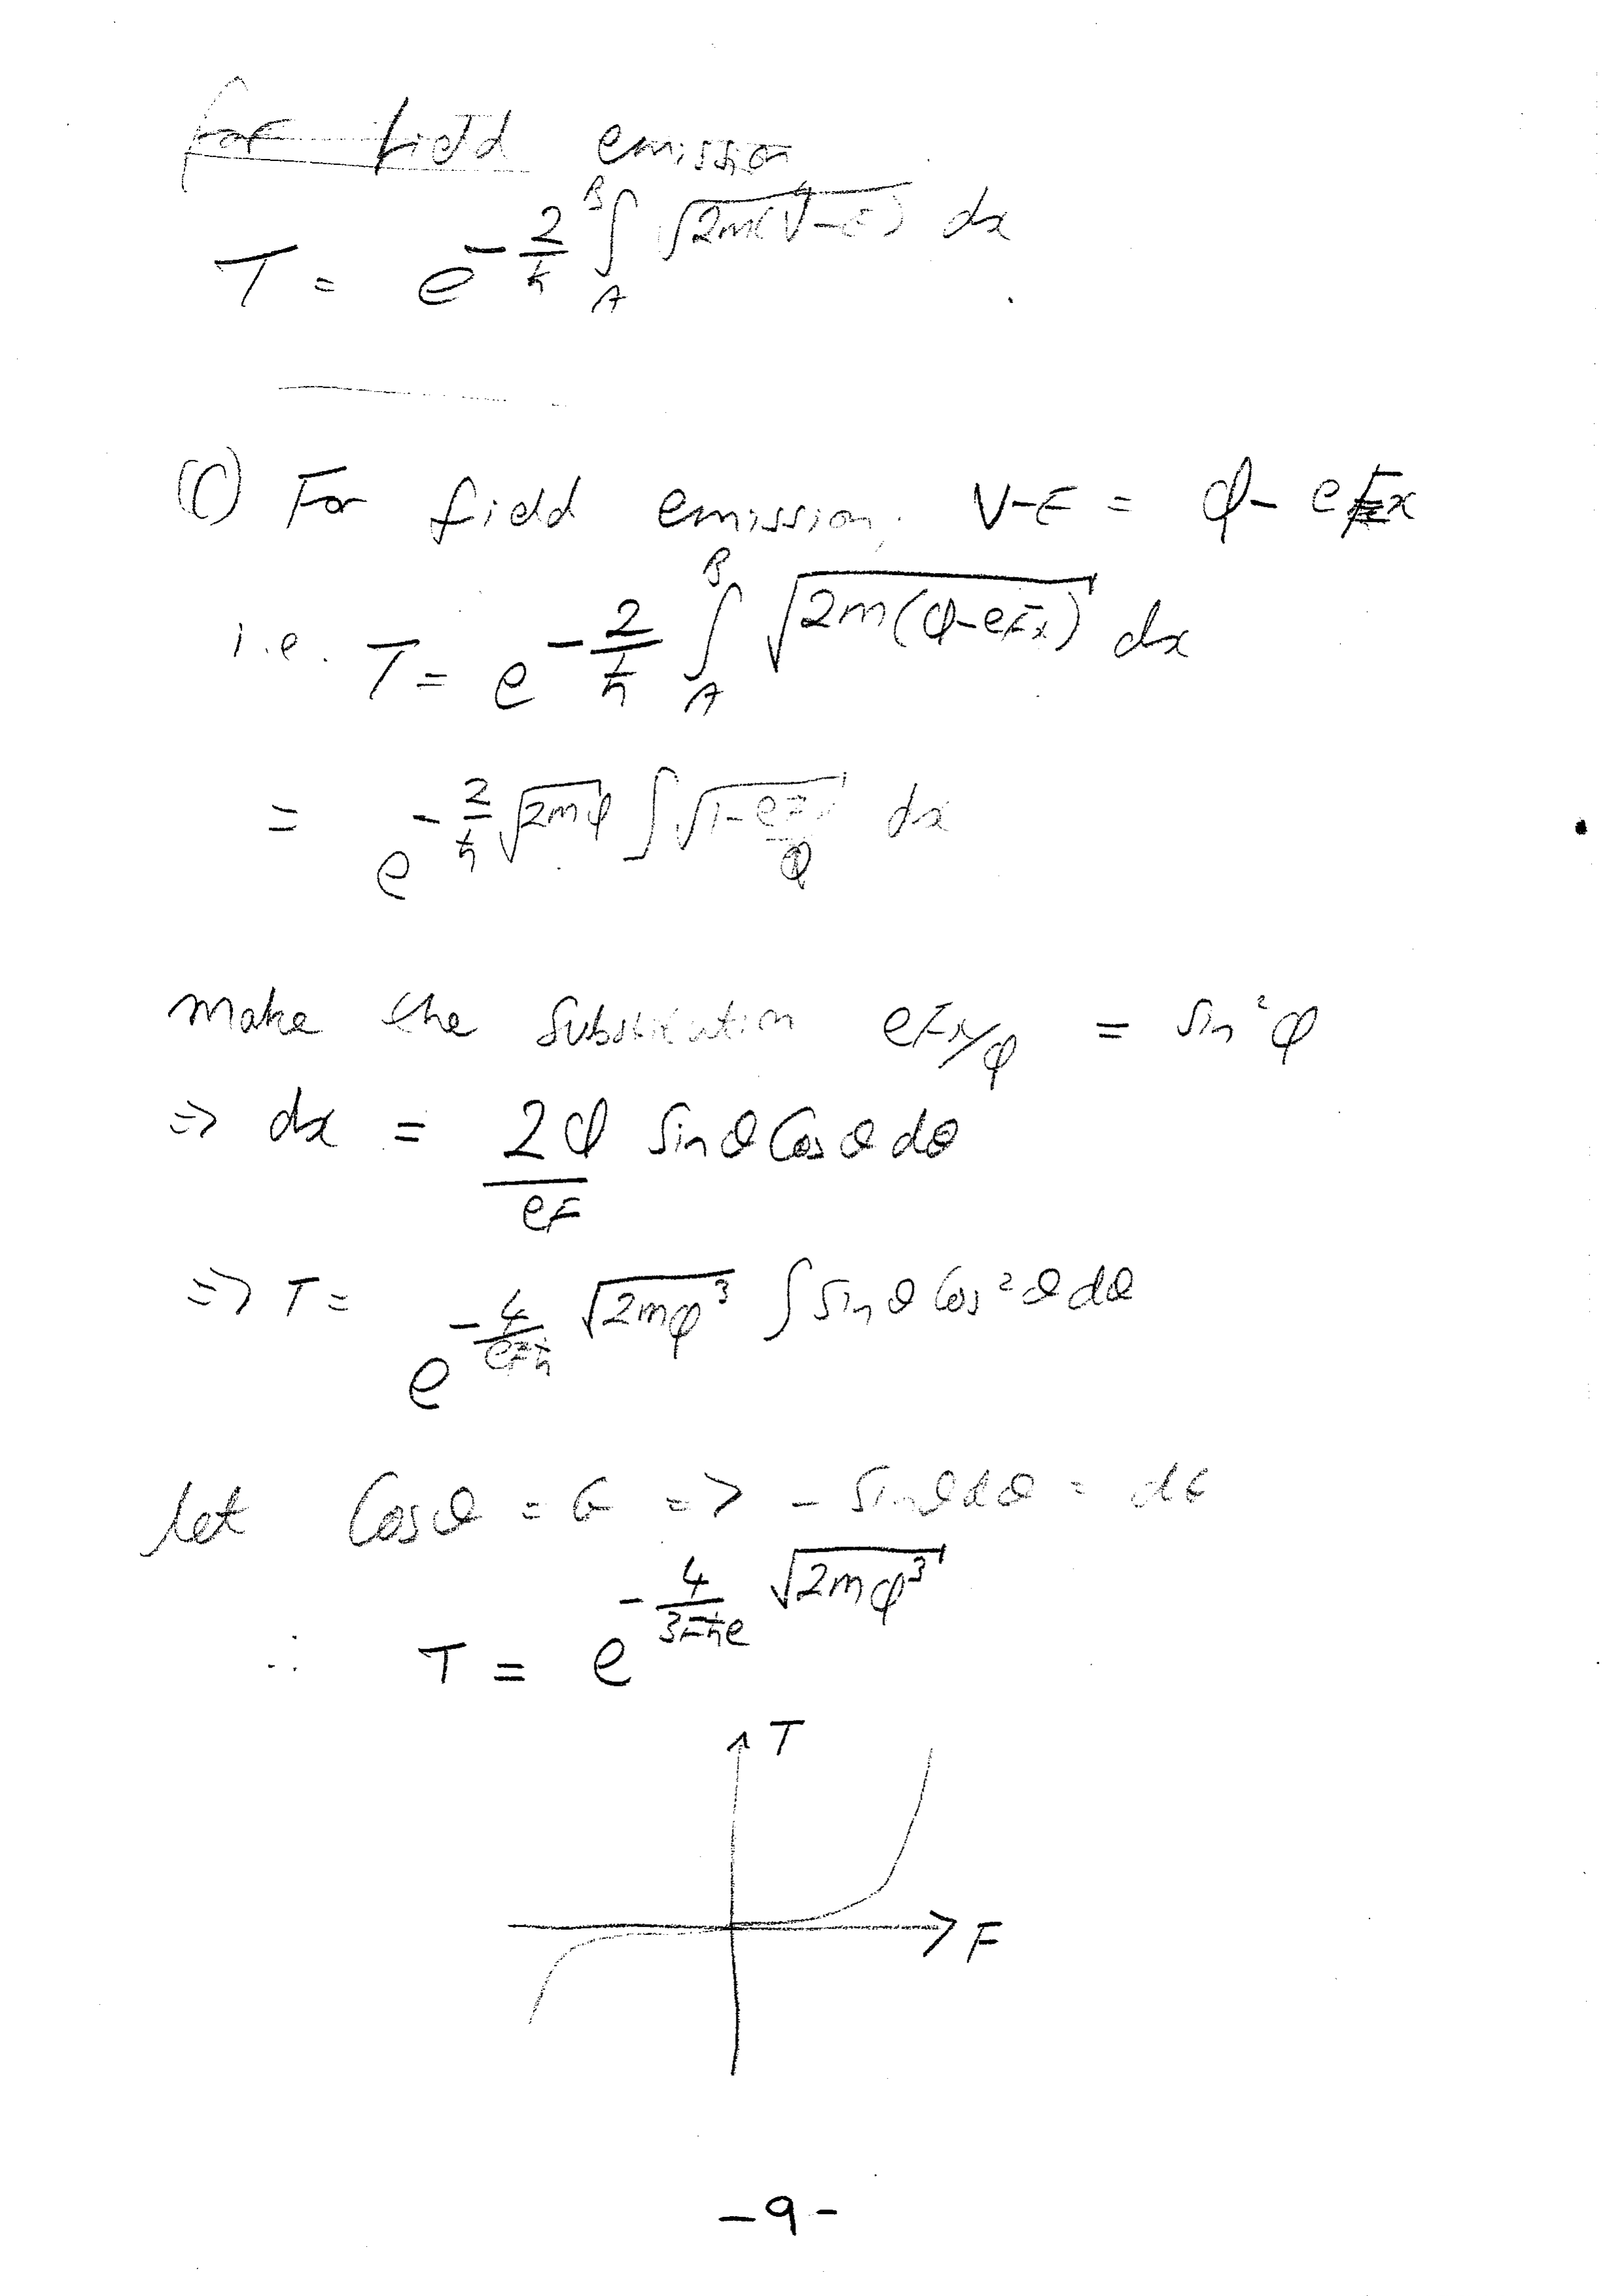 For field emission
T = e^{-\frac{2}{ħ} \int_A^B \sqrt{2m(V-E)} dx}
(c) For field emission, V-E = φ - eFx
i.e. T = e^{-\frac{2}{ħ} \int_A^B \sqrt{2m(φ-eFx)} dx}
= e^{-\frac{2}{ħ} \sqrt{2mφ} \int \sqrt{1-\frac{eFx}{φ}} dx}
Make the Substitution eFx/φ = Sin²φ
=> dx = \frac{2φ}{eF} Sinθ Cosθ dθ
=> T = e^{-\frac{4}{eFħ} \sqrt{2mφ^3} \int Sinθ Cos²θ dθ}
let Cosθ = G => - Sinθdθ = dG
∴ T = e^{-\frac{4}{3Fħe} \sqrt{2mφ^3}}
T
F
-9-